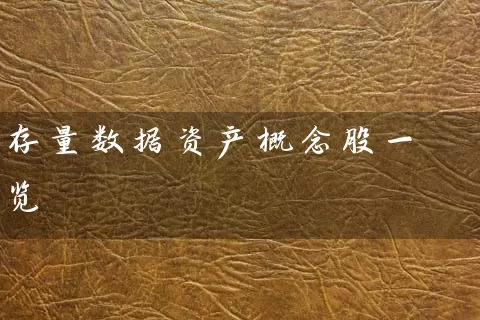 存量数据资产概念股一
览